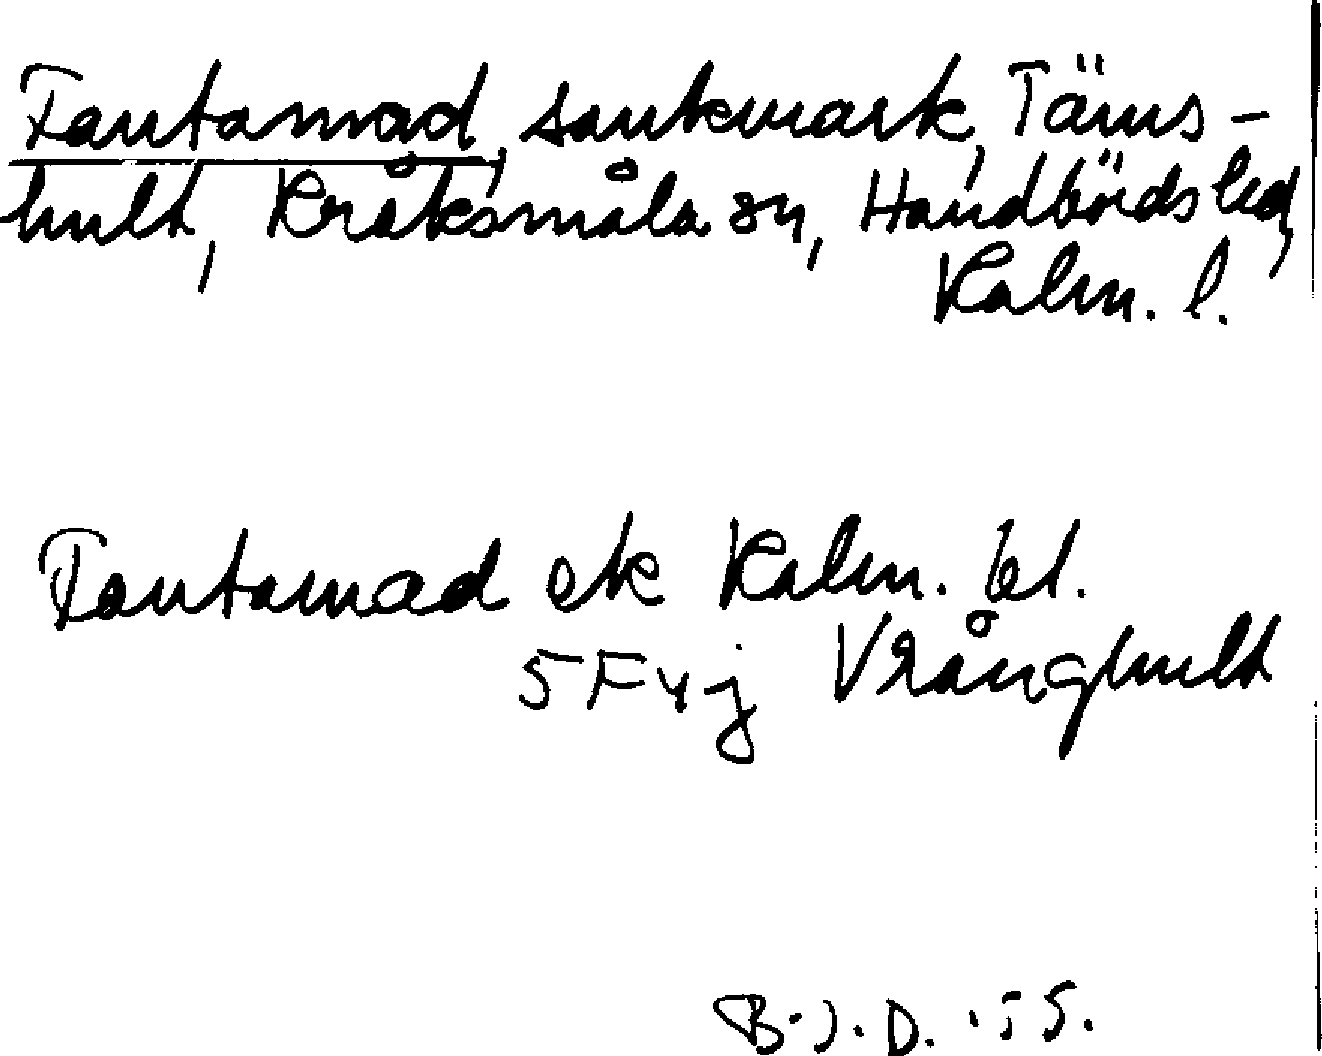 Tantamad, sankmark, Täms-
hult, Kråksmåla sn, Handbörds hd,
Kalm. l.
Tantamad ek Kalm. bl.
5F4j Vrånghult
B.J.D. -55.